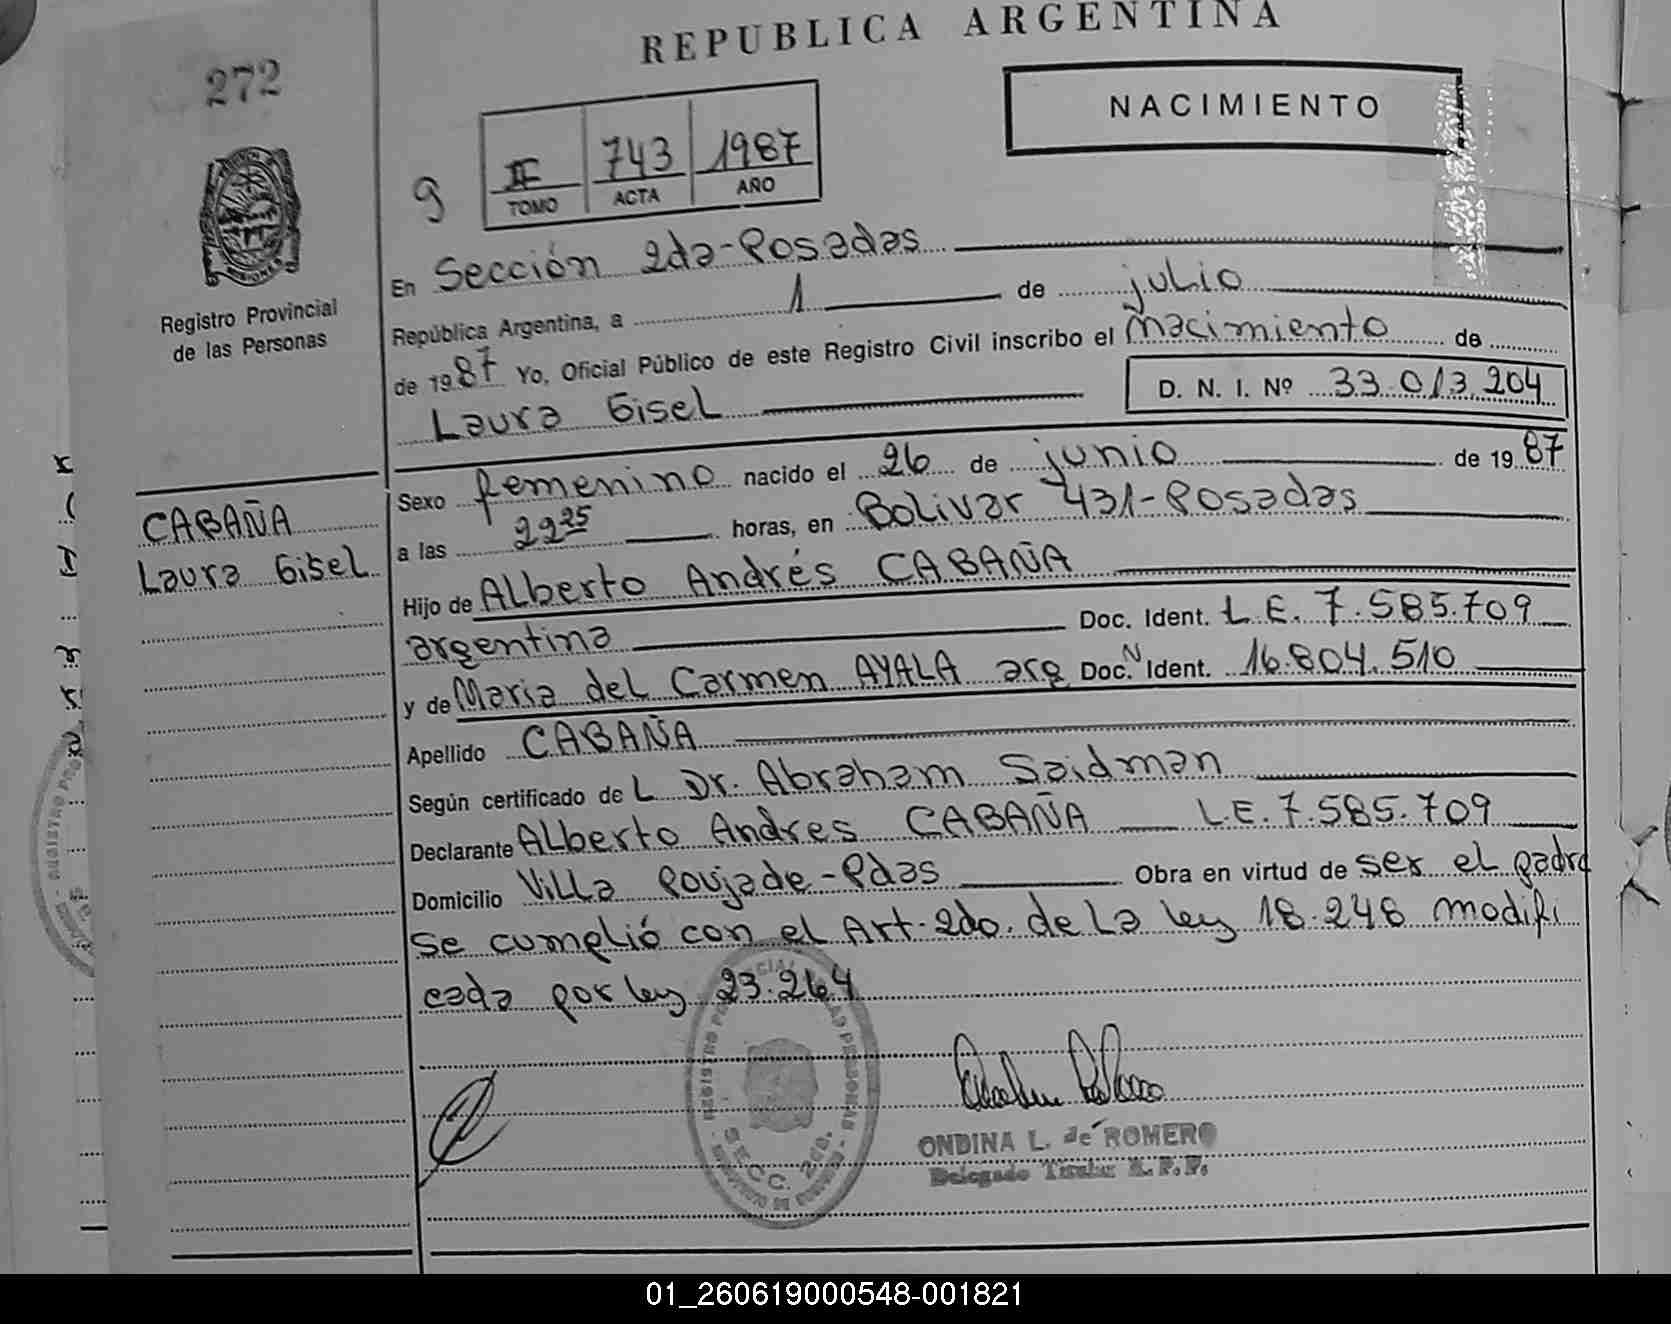 REPUBLICA ARGENTINA
272
NACIMIENTO
9
II 743 1987
TOMO ACTA AÑO
MISIONES
Registro Provincial
de las Personas
En Sección 2da-Posadas
República Argentina, a 1 de julio
de 1987 Yo, Oficial Público de este Registro Civil inscribo el nacimiento de
Laura Gisel D. N. I. Nº 33.013.204
Sexo femenino nacido el 26 de junio de 1987
a las 22 25 horas, en Bolivar 431-Posadas
CABAÑA
Laura Gisel
Hijo de Alberto Andrés CABAÑA
argentina Doc. Ident. L.E. 7.585.709
y de Maria del Carmen AYALA arg Doc. N Ident. 16.804.510
Apellido CABAÑA
Según certificado de L Dr. Abraham Saidman
Declarante Alberto Andres CABAÑA L.E. 7.585.709
Domicilio Villa Poujade-Pdas Obra en virtud de ser el padre
se cumplió con el Art. 2do. de la ley 18.248 modifi
cada por ley 23.264
REGISTRO PROVINCIAL DE LAS PERSONAS
SECC. 2da.
ONDINA L. de ROMERO
Delegado Titular R. P. P.
01_260619000548-001821